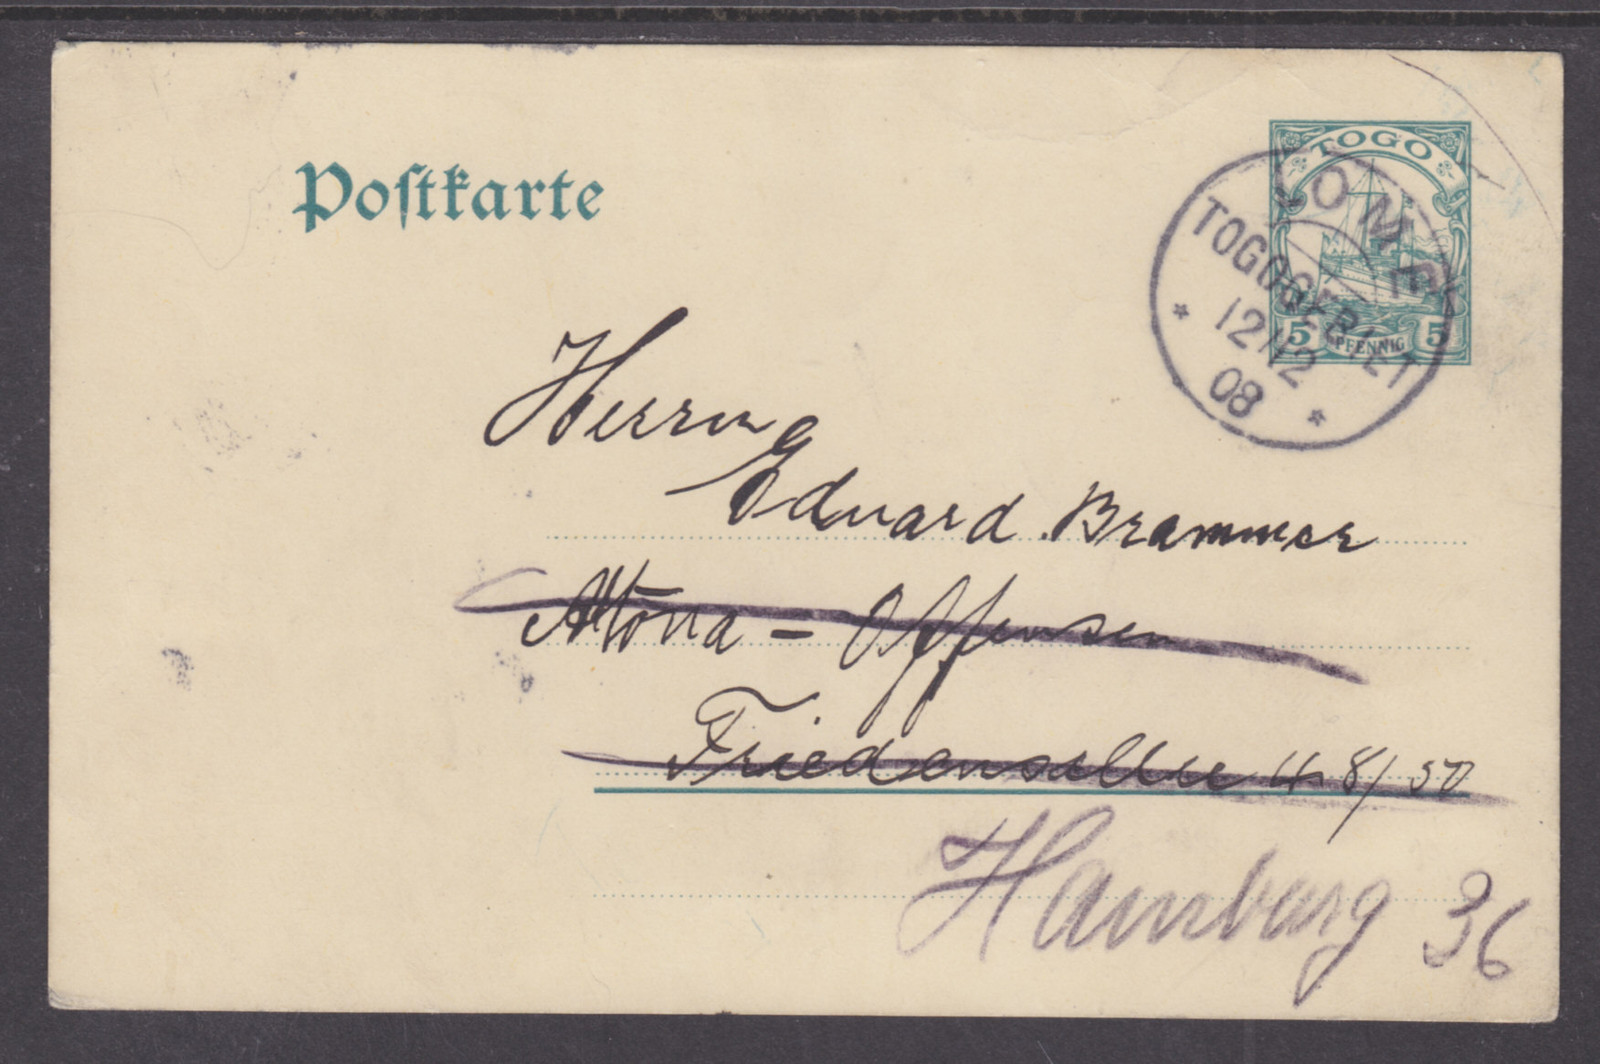 Postkarte
TOGO
5 PFENNIG 5
LOME
TOGOGEBIET
12/12
08
Herrn
Eduard Brammer
Altona - Offensen
Friedensallee 48/50
Hamburg 36